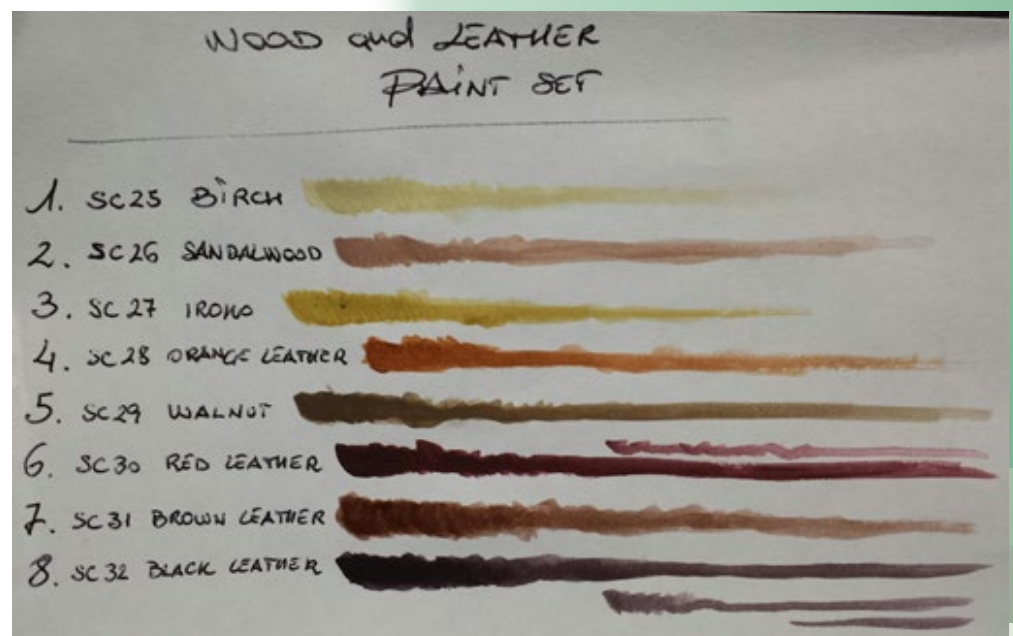 WOOD and LEATHER
PAINT SET
1. SC25 BIRCH
2. SC26 SANDALWOOD
3. SC27 IROKO
4. SC28 ORANGE LEATHER
5. SC29 WALNUT
6. SC30 RED LEATHER
7. SC31 BROWN LEATHER
8. SC32 BLACK LEATHER